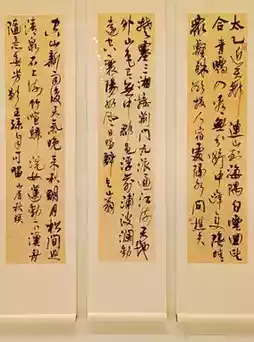 太乙近天都連山到海隅白雲回望
合青靄入看無分野中峰變陰晴
眾壑殊欲投人宿處隔水問樵夫
楚塞三湘接荊門九派通江流天地
外山色有無中郡邑浮前浦波瀾動
遠空襄陽好風日留醉與山翁
空山新雨後天氣晚來秋明月松間照
清泉石上流竹喧歸浣女蓮動下漁舟
隨意春芳歇王孫自可留山居秋暝